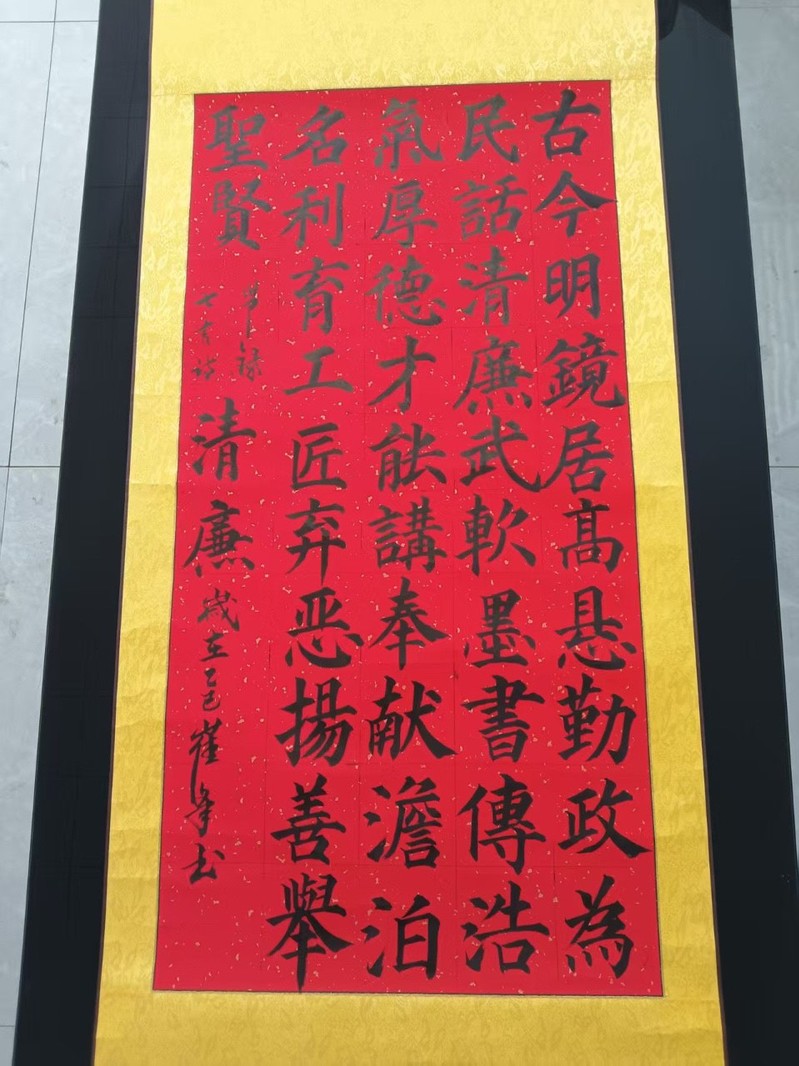 古今明鏡居高悬勤政為
民話清廉武軟墨書傳浩
氣厚德才能講奉献澹泊
名利育工匠弃恶揚善舉
聖賢
錄
七言詩
清廉
歲在乙巳崔峰书